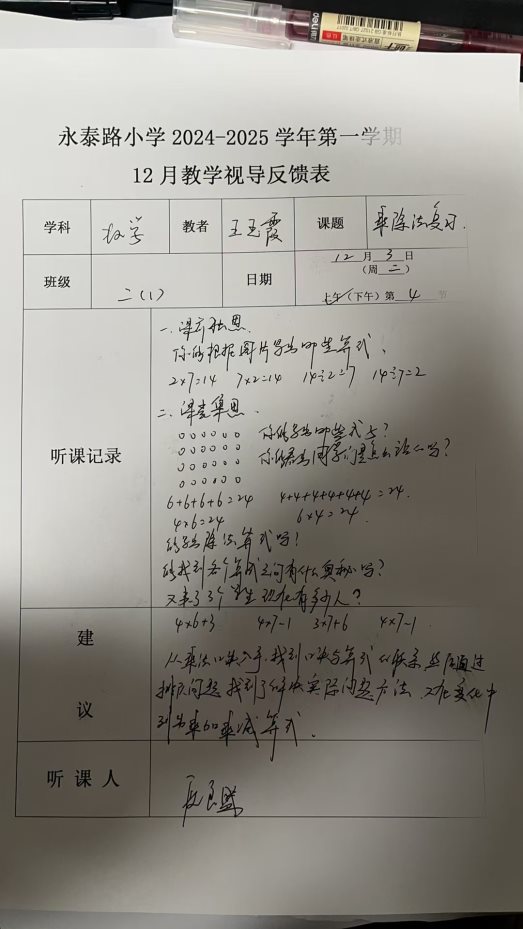 永泰路小学 2024-2025 学年第一学期
12 月教学视导反馈表
学科 数学 教者 王玉霞 课题 乘除法复习.
班级 二(1) 日期 12 月 3 日
(周 二)
上午(下午)第 4 节
听课记录
一、课前独思
你能根据图片写出哪些算式、
2×7=14 7×2=14 14÷2=7 14÷7=2
二、课堂集思.
你能写出哪些式子?
你能看出同学们是怎么说么吗?
6+6+6+6=24 4+4+4+4+4+4=24.
4×6=24 6×4=24.
能写出除法算式吗?
能找到各个算式之间有什么奥秘吗?
又来了3个学生现在有多少人?
4×6+3 4×7-1 3×7+6 4×7-1.
建议
从乘法口诀入手,找到口诀与算式的联系,然后通过
排队问题找到了解决实际问题方法,又在变化中
到乘加乘减算式.
听 课 人